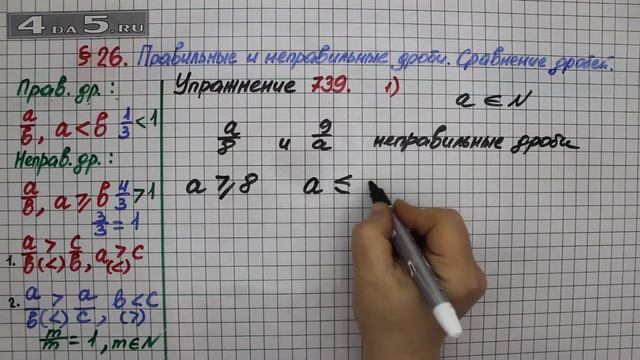 4DA5.RU
§ 26. Правильные и неправильные дроби. Сравнение дробей.
Прав. др.:
a/b, a < b 1/3 < 1
Неправ. др.:
a/b, a ⩾ b 4/3 > 1
3/3 = 1
1. a/b >(<) c/b, a >(<) c
2. a/b >(<) a/c, b < c (>)
m/m = 1, m ∈ N
Упражнение 739. 1)
a ∈ N
a/8 и 9/a неправильные дроби
a ⩾ 8 a ≤